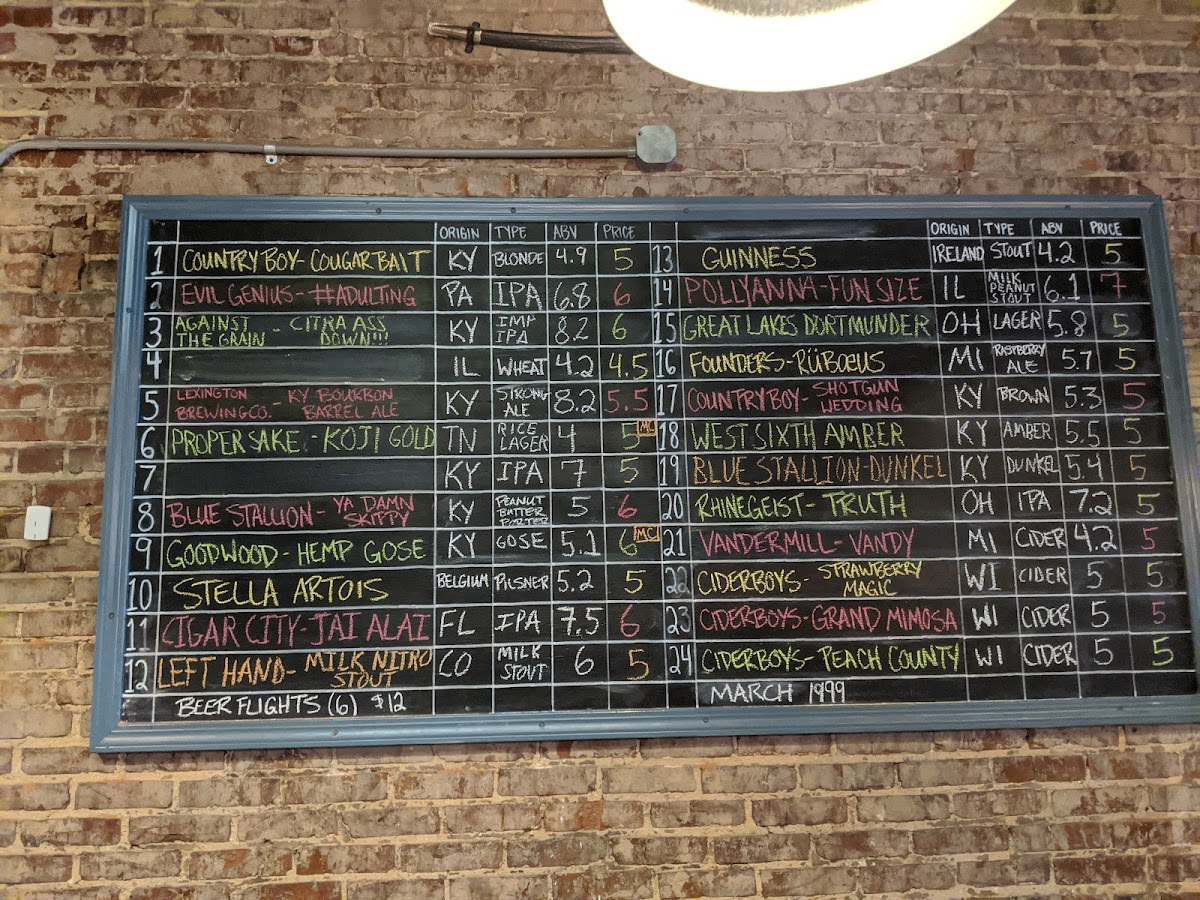 ORIGIN TYPE ABV PRICE
1 COUNTRY BOY - COUGAR BAIT KY BLONDE 4.9 5
2 EVIL GENIUS - #ADULTING PA IPA 6.8 6
3 AGAINST THE GRAIN - CITRA ASS DOWN!!! KY IMP IPA 8.2 6
4 IL WHEAT 4.2 4.5
5 LEXINGTON BREWING CO. - KY BOURBON BARREL ALE KY STRONG ALE 8.2 5.5
6 PROPER SAKE - KOJI GOLD TN RICE LAGER 4 5 MC
7 KY IPA 7 5
8 BLUE STALLION - YA DAMN SKIPPY KY PEANUT BUTTER PORTER 5 6
9 GOODWOOD - HEMP GOSE KY GOSE 5.1 6 MC
10 STELLA ARTOIS BELGIUM PILSNER 5.2 5
11 CIGAR CITY - JAI ALAI FL IPA 7.5 6
12 LEFT HAND - MILK NITRO STOUT CO MILK STOUT 6 5
BEER FLIGHTS (6) $12
ORIGIN TYPE ABV PRICE
13 GUINNESS IRELAND STOUT 4.2 5
14 POLLYANNA - FUN SIZE IL MILK PEANUT STOUT 6.1 7
15 GREAT LAKES DORTMUNDER OH LAGER 5.8 5
16 FOUNDERS - RÜBOEUS MI RASPBERRY ALE 5.7 5
17 COUNTRY BOY - SHOTGUN WEDDING KY BROWN 5.3 5
18 WEST SIXTH AMBER KY AMBER 5.5 5
19 BLUE STALLION - DUNKEL KY DUNKEL 5.4 5
20 RHINEGEIST - TRUTH OH IPA 7.2 5
21 VANDERMILL - VANDY MI CIDER 4.2 5
22 CIDERBOYS - STRAWBERRY MAGIC WI CIDER 5 5
23 CIDERBOYS - GRAND MIMOSA WI CIDER 5 5
24 CIDERBOYS - PEACH COUNTY WI CIDER 5 5
MARCH 1999